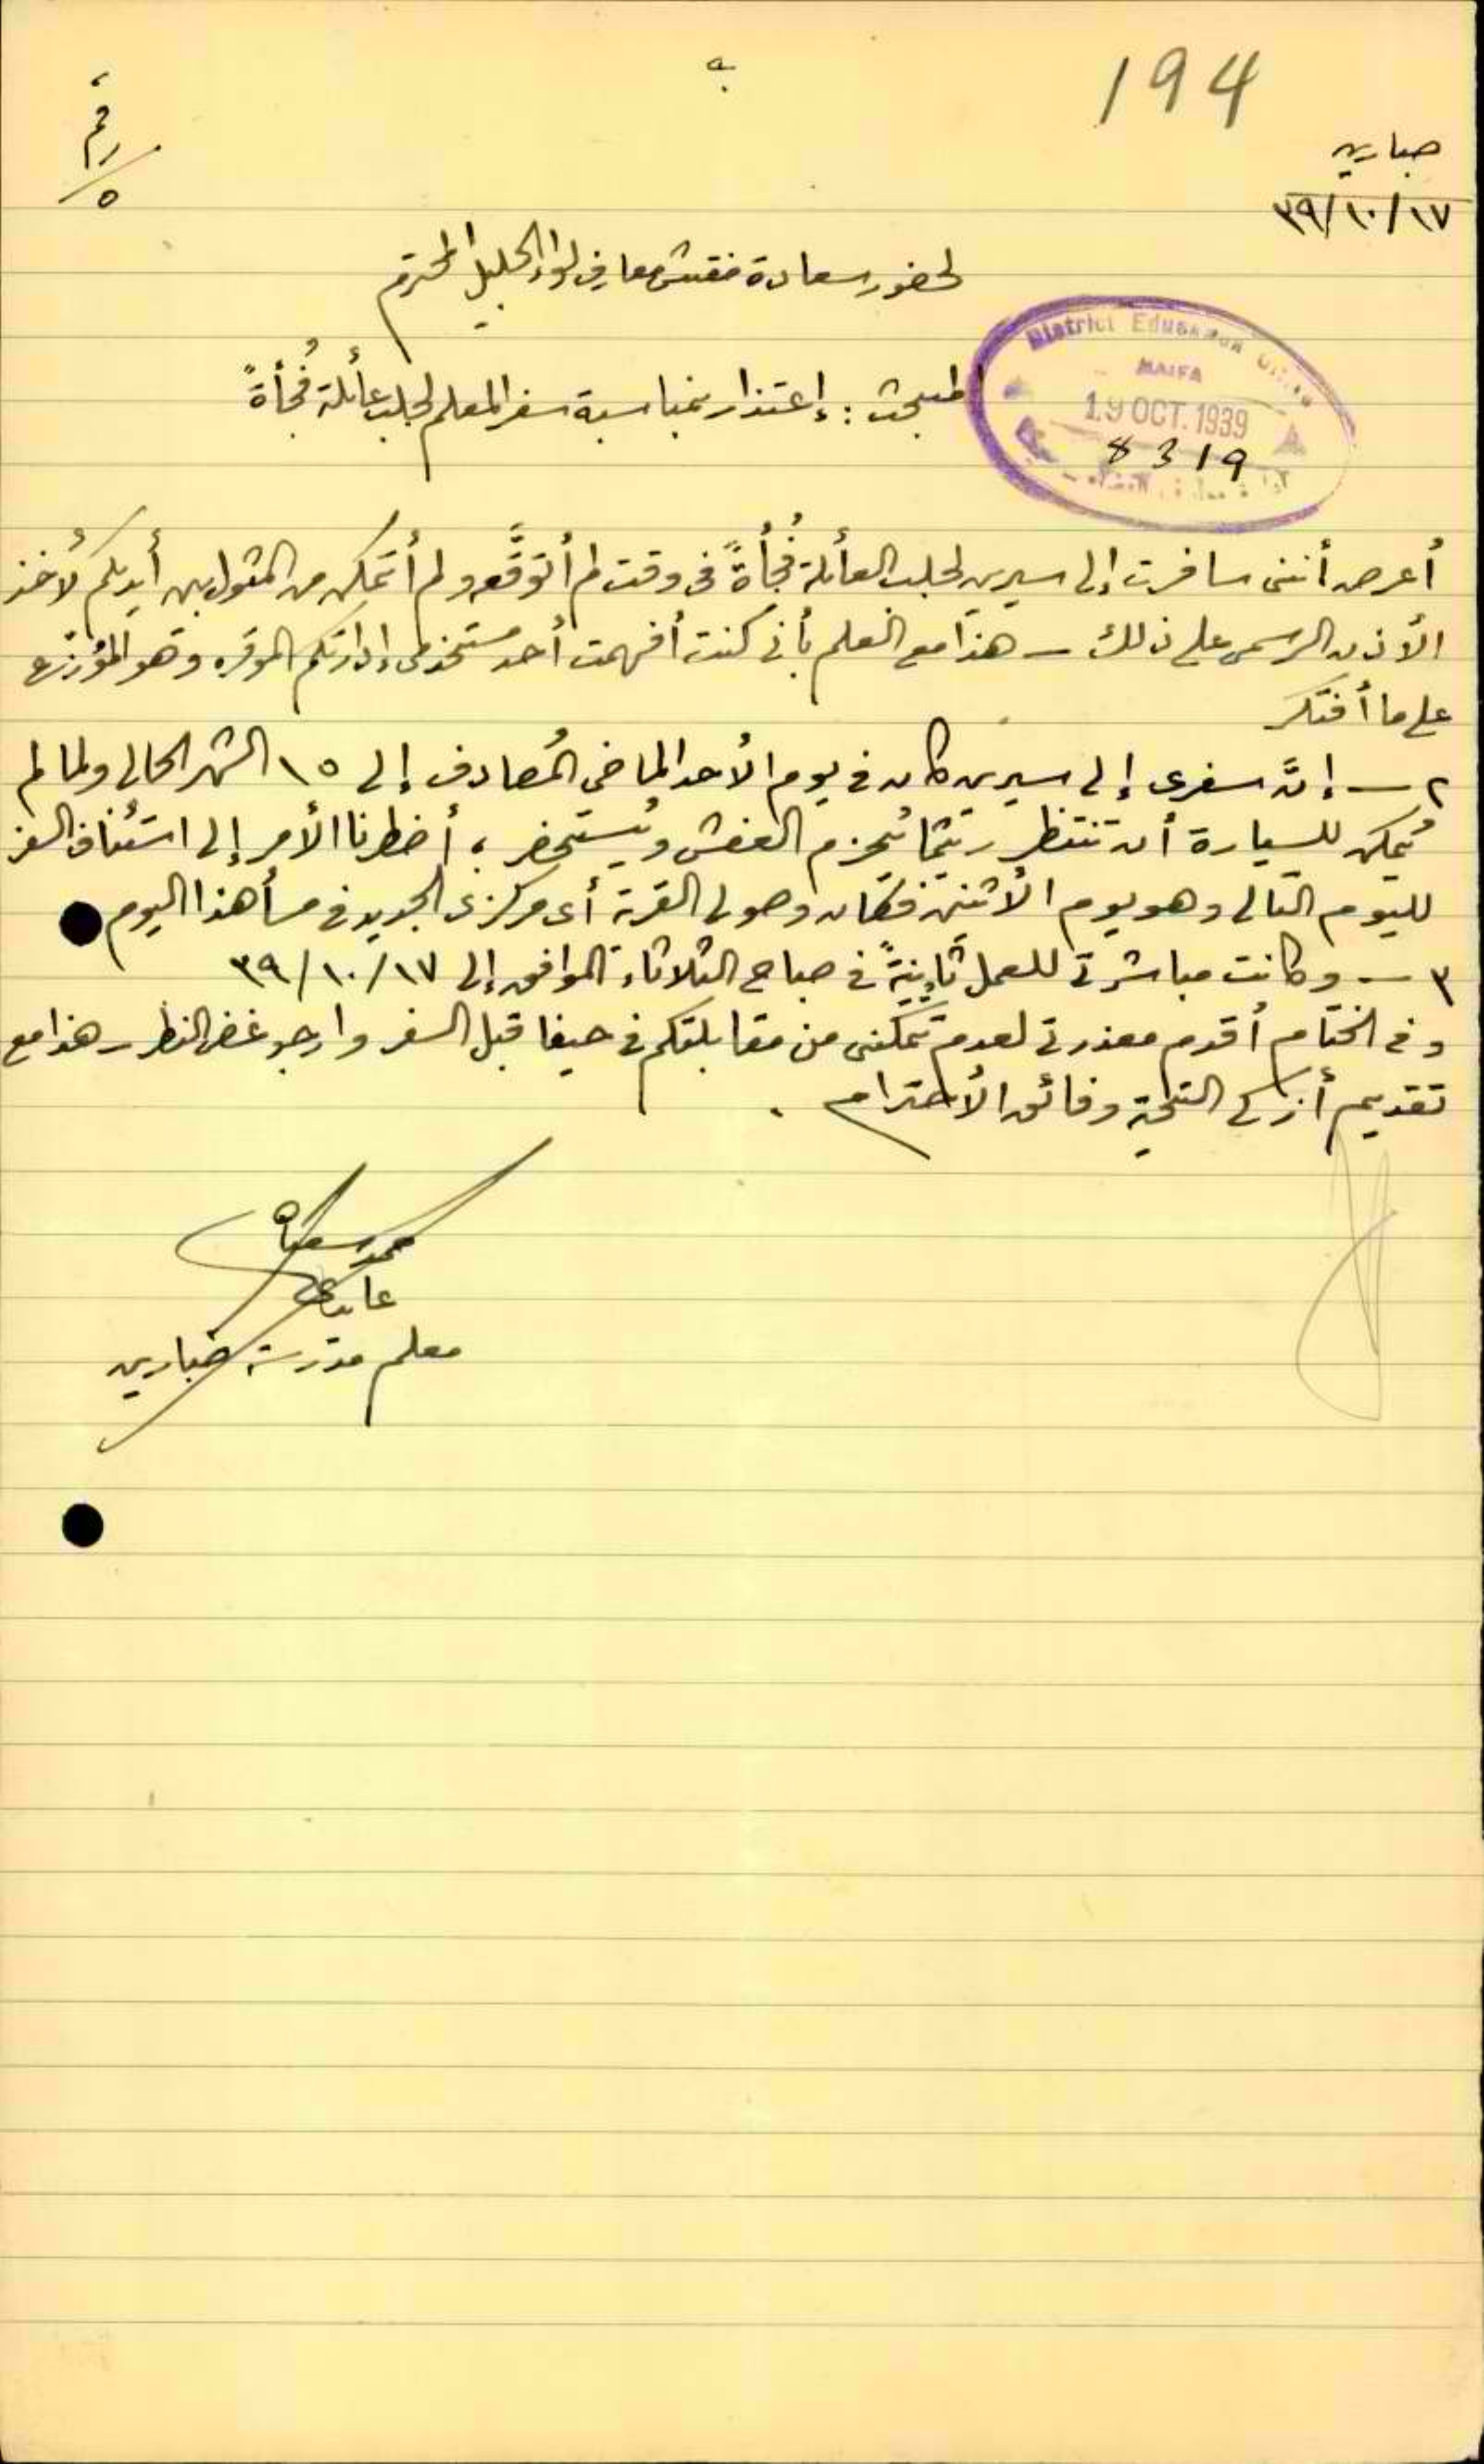 194
صبارين
١٧/١٠/٣٩
رقم
٥
لحضور سعادة مفتش معارف لواء الجليل المحترم
District Education Office
HAIFA
19 OCT. 1939
8319
المبحث : إعتذار بمناسبة سفر المعلم لجلب عائلة فُجأةً
أعرض أنني سافرت إلى سيرين لجلب العائلة فُجأةً في وقت لم أتوقَّعه ولم أتمكن من المثول بين أيديكم لأخذ
الأذن الرسمي على ذلك — هذا مع العلم بأني كنت أفهمت أحد مستخدمي إدارتكم الموقره وهو المؤزع
على ما أفتكر
٢ — إنَّ سفري إلى سيرين كان في يوم الأحد الماضي المُصادف إلى ١٥ الشهر الحالي ولما لم
يُمكن للسيارة أن تنتظر ريثما يُحزم العفش ويُستحضر ، أضطرنا الأمر إلى استئناف السفر
لليوم التالي وهو يوم الأثنين فكان وصولي القرية أي مركزي الجديد في مسأ هذا اليوم
٣ — وكانت مباشرتي للعمل ثانيةً في صباح الثلاثاء الموافق إلى ١٧/١٠/٣٩
وفي الختام أقدم معذرتي لعدم تمكني من مقابلتكم في حيفا قبل السفر وارجو غض النظر — هذا مع
تقديم أزكى التحية وفائق الأحترام .
محمد
معلم مدرسة صبارين